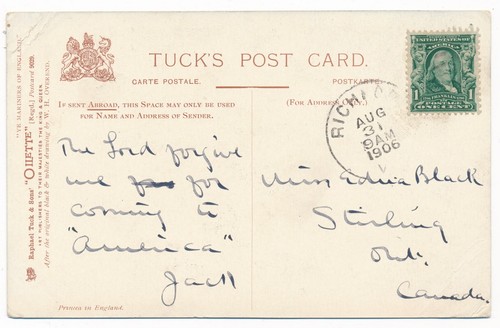 TUCK'S POST CARD.
CARTE POSTALE. POSTKARTE.
IF SENT ABROAD, THIS SPACE MAY ONLY BE USED
FOR NAME AND ADDRESS OF SENDER.
(FOR ADDRESS ONLY.)
The Lord forgive
me for
coming to
"America"
Jack
Printed in England.
Miss Edna Black
Stirling
Ont.
Canada.
AUG
31
9AM
1906
UNITED STATES OF AMERICA
POSTAGE
1 ONE CENT 1
"YE MARINERS OF ENGLAND."
Raphael Tuck & Sons' "OILETTE" [Regd.] Postcard
ART PUBLISHERS TO THEIR MAJESTIES THE KING & QUEEN.
After the original black & white drawing by W. H. OVEREND.